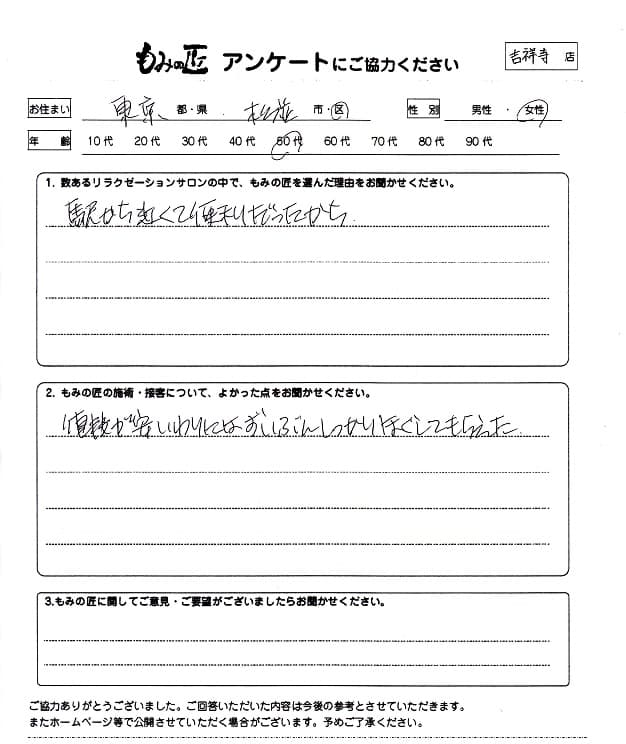 もみの匠 アンケートにご協力ください
吉祥寺 店
お住まい 東京 都・県 杉並 市・区 性別 男性・女性
年齢 10代 20代 30代 40代 50代 60代 70代 80代 90代
1. 数あるリラクゼーションサロンの中で、もみの匠を選んだ理由をお聞かせください。
駅から近くて便利だったから
2. もみの匠の施術・接客について、よかった点をお聞かせください。
値段が安いわりにはずいぶんしっかりほぐしてもらえた
3.もみの匠に関してご意見・ご要望がございましたらお聞かせください。
ご協力ありがとうございました。ご回答いただいた内容は今後の参考とさせていただきます。
またホームページ等で公開させていただく場合がございます。予めご了承ください。